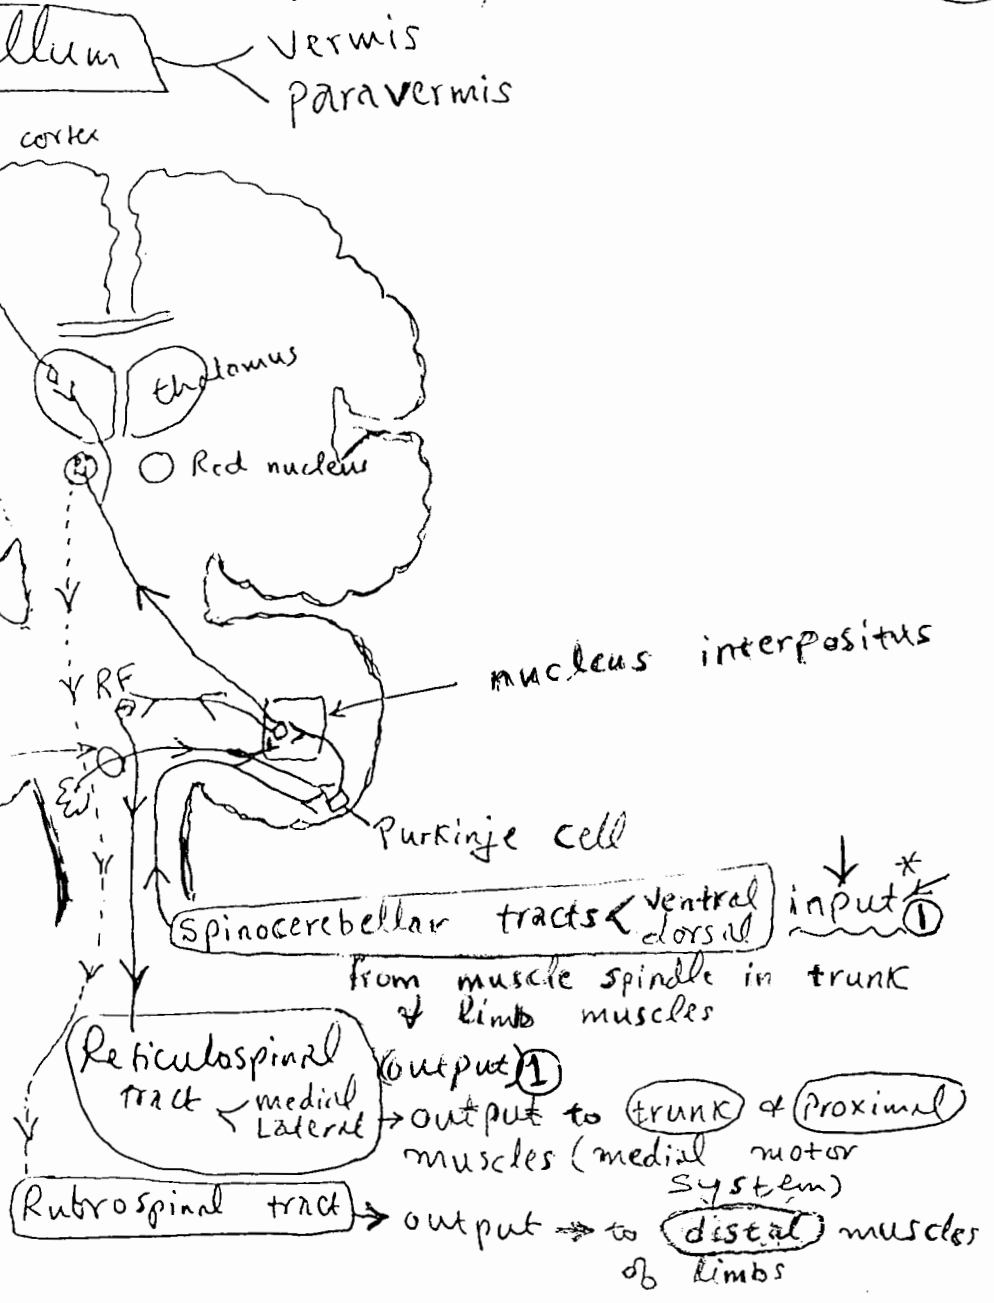 llum
vermis
paravermis
cortex
thalamus
Red nucleus
nucleus interpositus
RF
Purkinje cell
Spinocerebellar tracts < ventral
dorsal
input *
1
from muscle spindle in trunk
& limb muscles
Reticulospinal
tract < medial
Lateral
(output) 1
→ output to trunk & Proximal
muscles (medial motor
system)
Rubrospinal tract → output → to distal muscles
of limbs